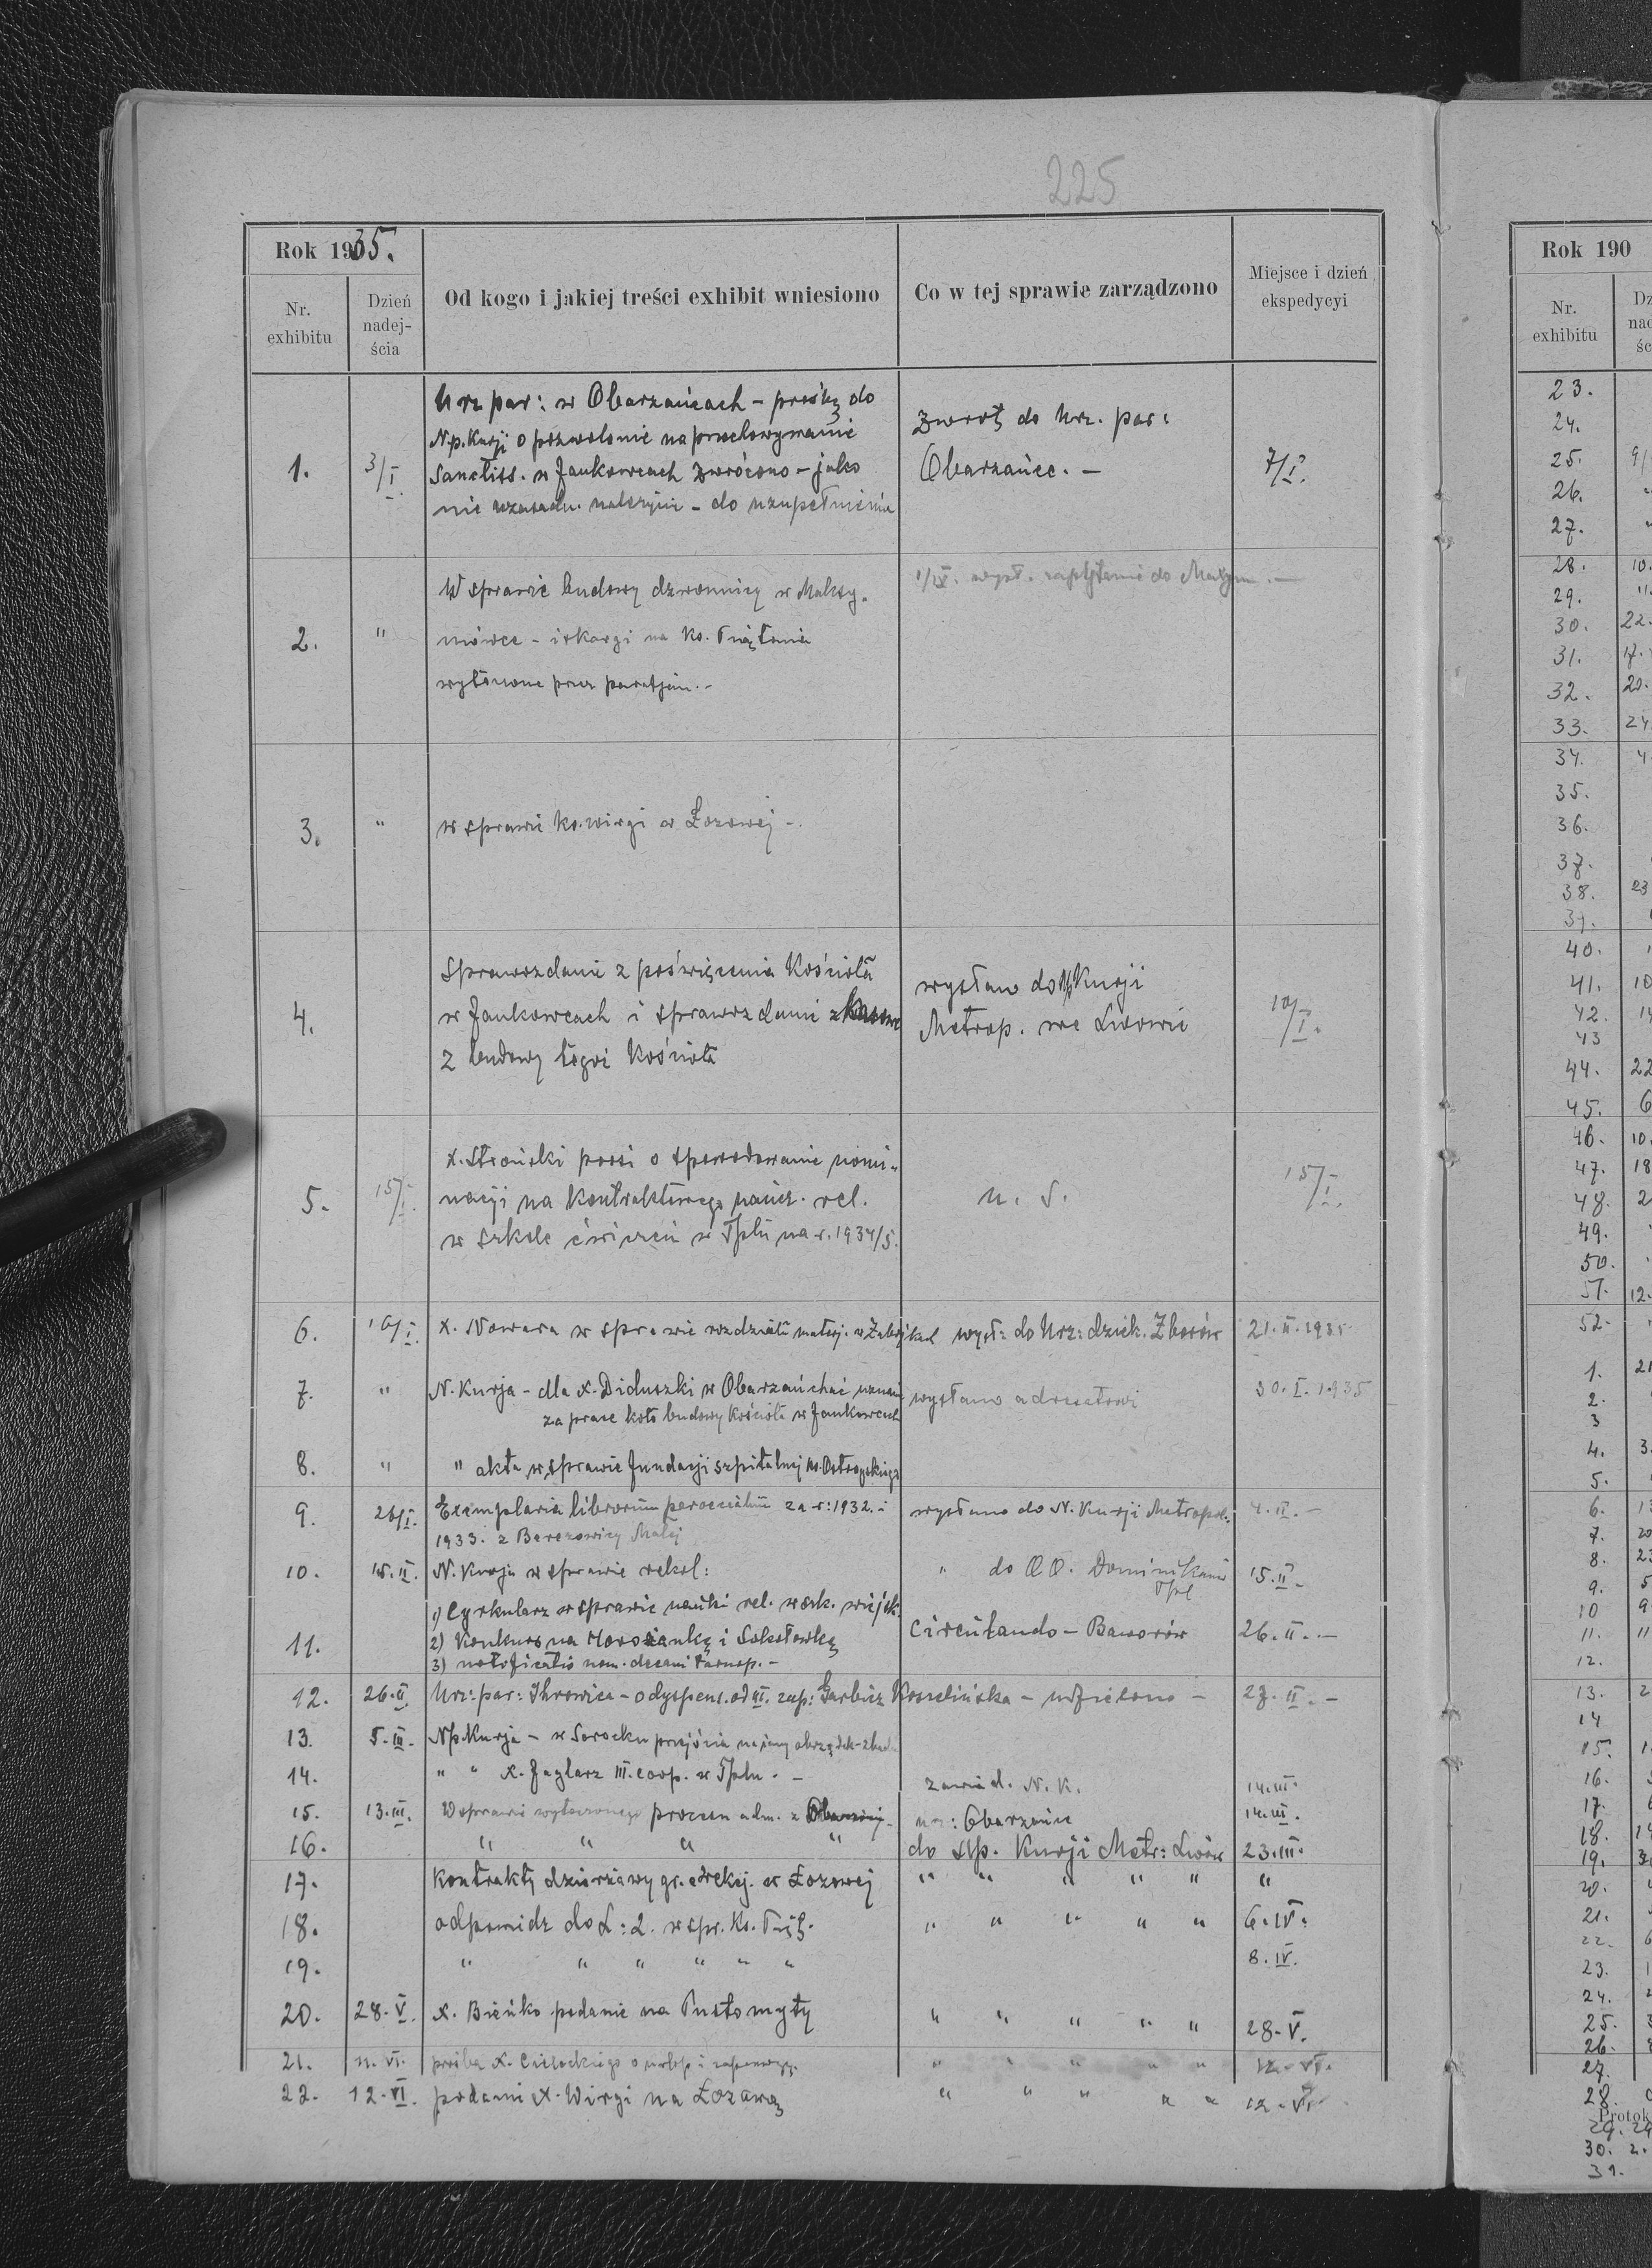 225
Rok 1935.
Nr. exhibitu
Dzień nadej-ścia
Od kogo i jakiej treści exhibit wniesiono
Co w tej sprawie zarządzono
Miejsce i dzień ekspedycyi
1. 3/I.
Urz par: w Obarzańcach – prośbę do
N.p. Kurji o pozwolenie na przechowywanie
Sanctiss. w Jankowcach zwrócono – jako
nie należycie – do uzupełnienia
zwrot do Urz. par:
Obarzańce. –
7/I.
2. "
W sprawie budowy dzwonnicy w Maksy-
mówce – i skargi na ks.
wytoczone przez parafjan. –
1/IV. wysł. zapytanie do
3. "
w sprawie ks. Wirgi w Łozowej –
4.
Sprawozdanie z poświęcenia Kościoła
w Jankowcach i sprawozdanie
z budowy tegoż Kościoła
wysłano do Kurji
Metrop. we Lwowie
10/I.
5. 15/I.
X. Słoński prosi o spowodowanie nomi-
nacji na kontraktowego naucz. rel.
w szkole ćwiczeń w Tplu na r. 1934/5.
u. s.
15/I.
6. 16/I. X. Nowara w sprawie rozdziału wysł: do Urz: dziek. Zborów 21.II.1935
7. " N. Kurja – dla X. Diduszki w
za prace koło budowy kościoła w Jankowcach
wysłano adresatowi 30.I.1935
8. " " akta w sprawie fundacji szpitalnej ks. Ostrogskiego
9. 26/I. Exemplaria librorum parochialium za r: 1932. i
1933. z Berezowicy Małej
wysłano do N. Kurji Metropol. 4.II. –
10. 15.II. N. Kurja w sprawie rekol:
" do OO. Dominikanów
Tpl
15.II.
11.
1) Cyrkularz w sprawie nauki rel. w szk. wiejsk.
2) Konkurs na i Sokołówkę
3) notificatio nom. decani tarnop. –
Circulando – Baworów 26.II. –
12. 26.II. Urz: par: Ihrowica – o dyspens. od III. zap: Garbicz – udzielono – 27.II. –
13. 5.III. Np. Kurja – w Sorocku przejścia na inny obrządek –
14. " " X. Jaglarz III. coop. w Tplu. –
zawiad. N. K. 14.III.
15. 13.III. W sprawie wytoczonego procesu adm. z
Obarzańce 14.III.
16. " " " "
do Np. Kurji Metr: Lwów 23.III.
17. Kontrakty dzierżawy gr. w Łozowej " " " " " "
18. odpowiedz do L: 2. w spr. ks. " " " " " 6.IV.
19. " " " " " " 8.IV.
20. 28.V. X. Bieńko podanie na Pustomyty " " " " " 28.V.
21. 11.VI. prośba X. o urlop i " " " " " 12.VI.
22. 12.VI. podanie X. Wirgi na Łozową " " " " " 12.VI.
Rok 190
Nr. exhibitu
23.
24.
25.
26.
27.
28. 10.
29. 11.
30. 22.
31. 17.
32. 20.
33. 24
34. 4
35.
36.
37.
38. 23
39.
40.
41. 10
42. 14
43
44. 22
45. 6
46. 10.
47. 18
48. 2
49.
50.
51. 12.
52.
1. 21
2.
3
4. 3.
5.
6. 13
7. 20
8. 23
9. 5
10 9
11. 11
12.
13. 2
14
15.
16.
17.
18.
19.
20.
21.
22.
23.
24.
25.
26.
27.
28.
Protok
29. 29
30. 2.
31.